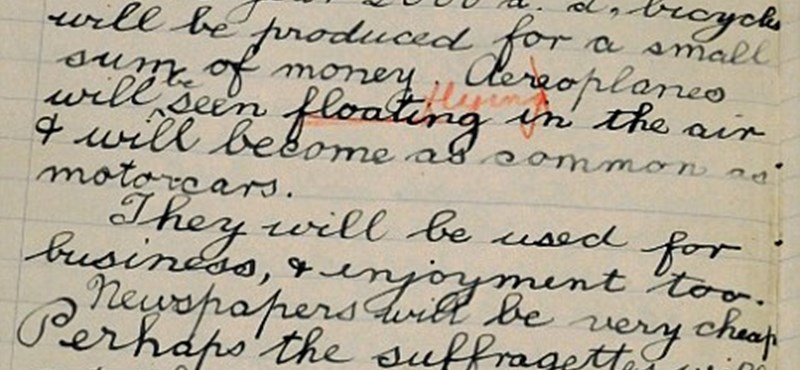 year 2000 a. d, bicycles
will be produced for a small
sum of money. Aereoplanes
will be seen floating flying in the air
& will become as common as
motorcars.
They will be used for
business, & enjoyment too.
Newspapers will be very cheap
Perhaps the suffragettes will